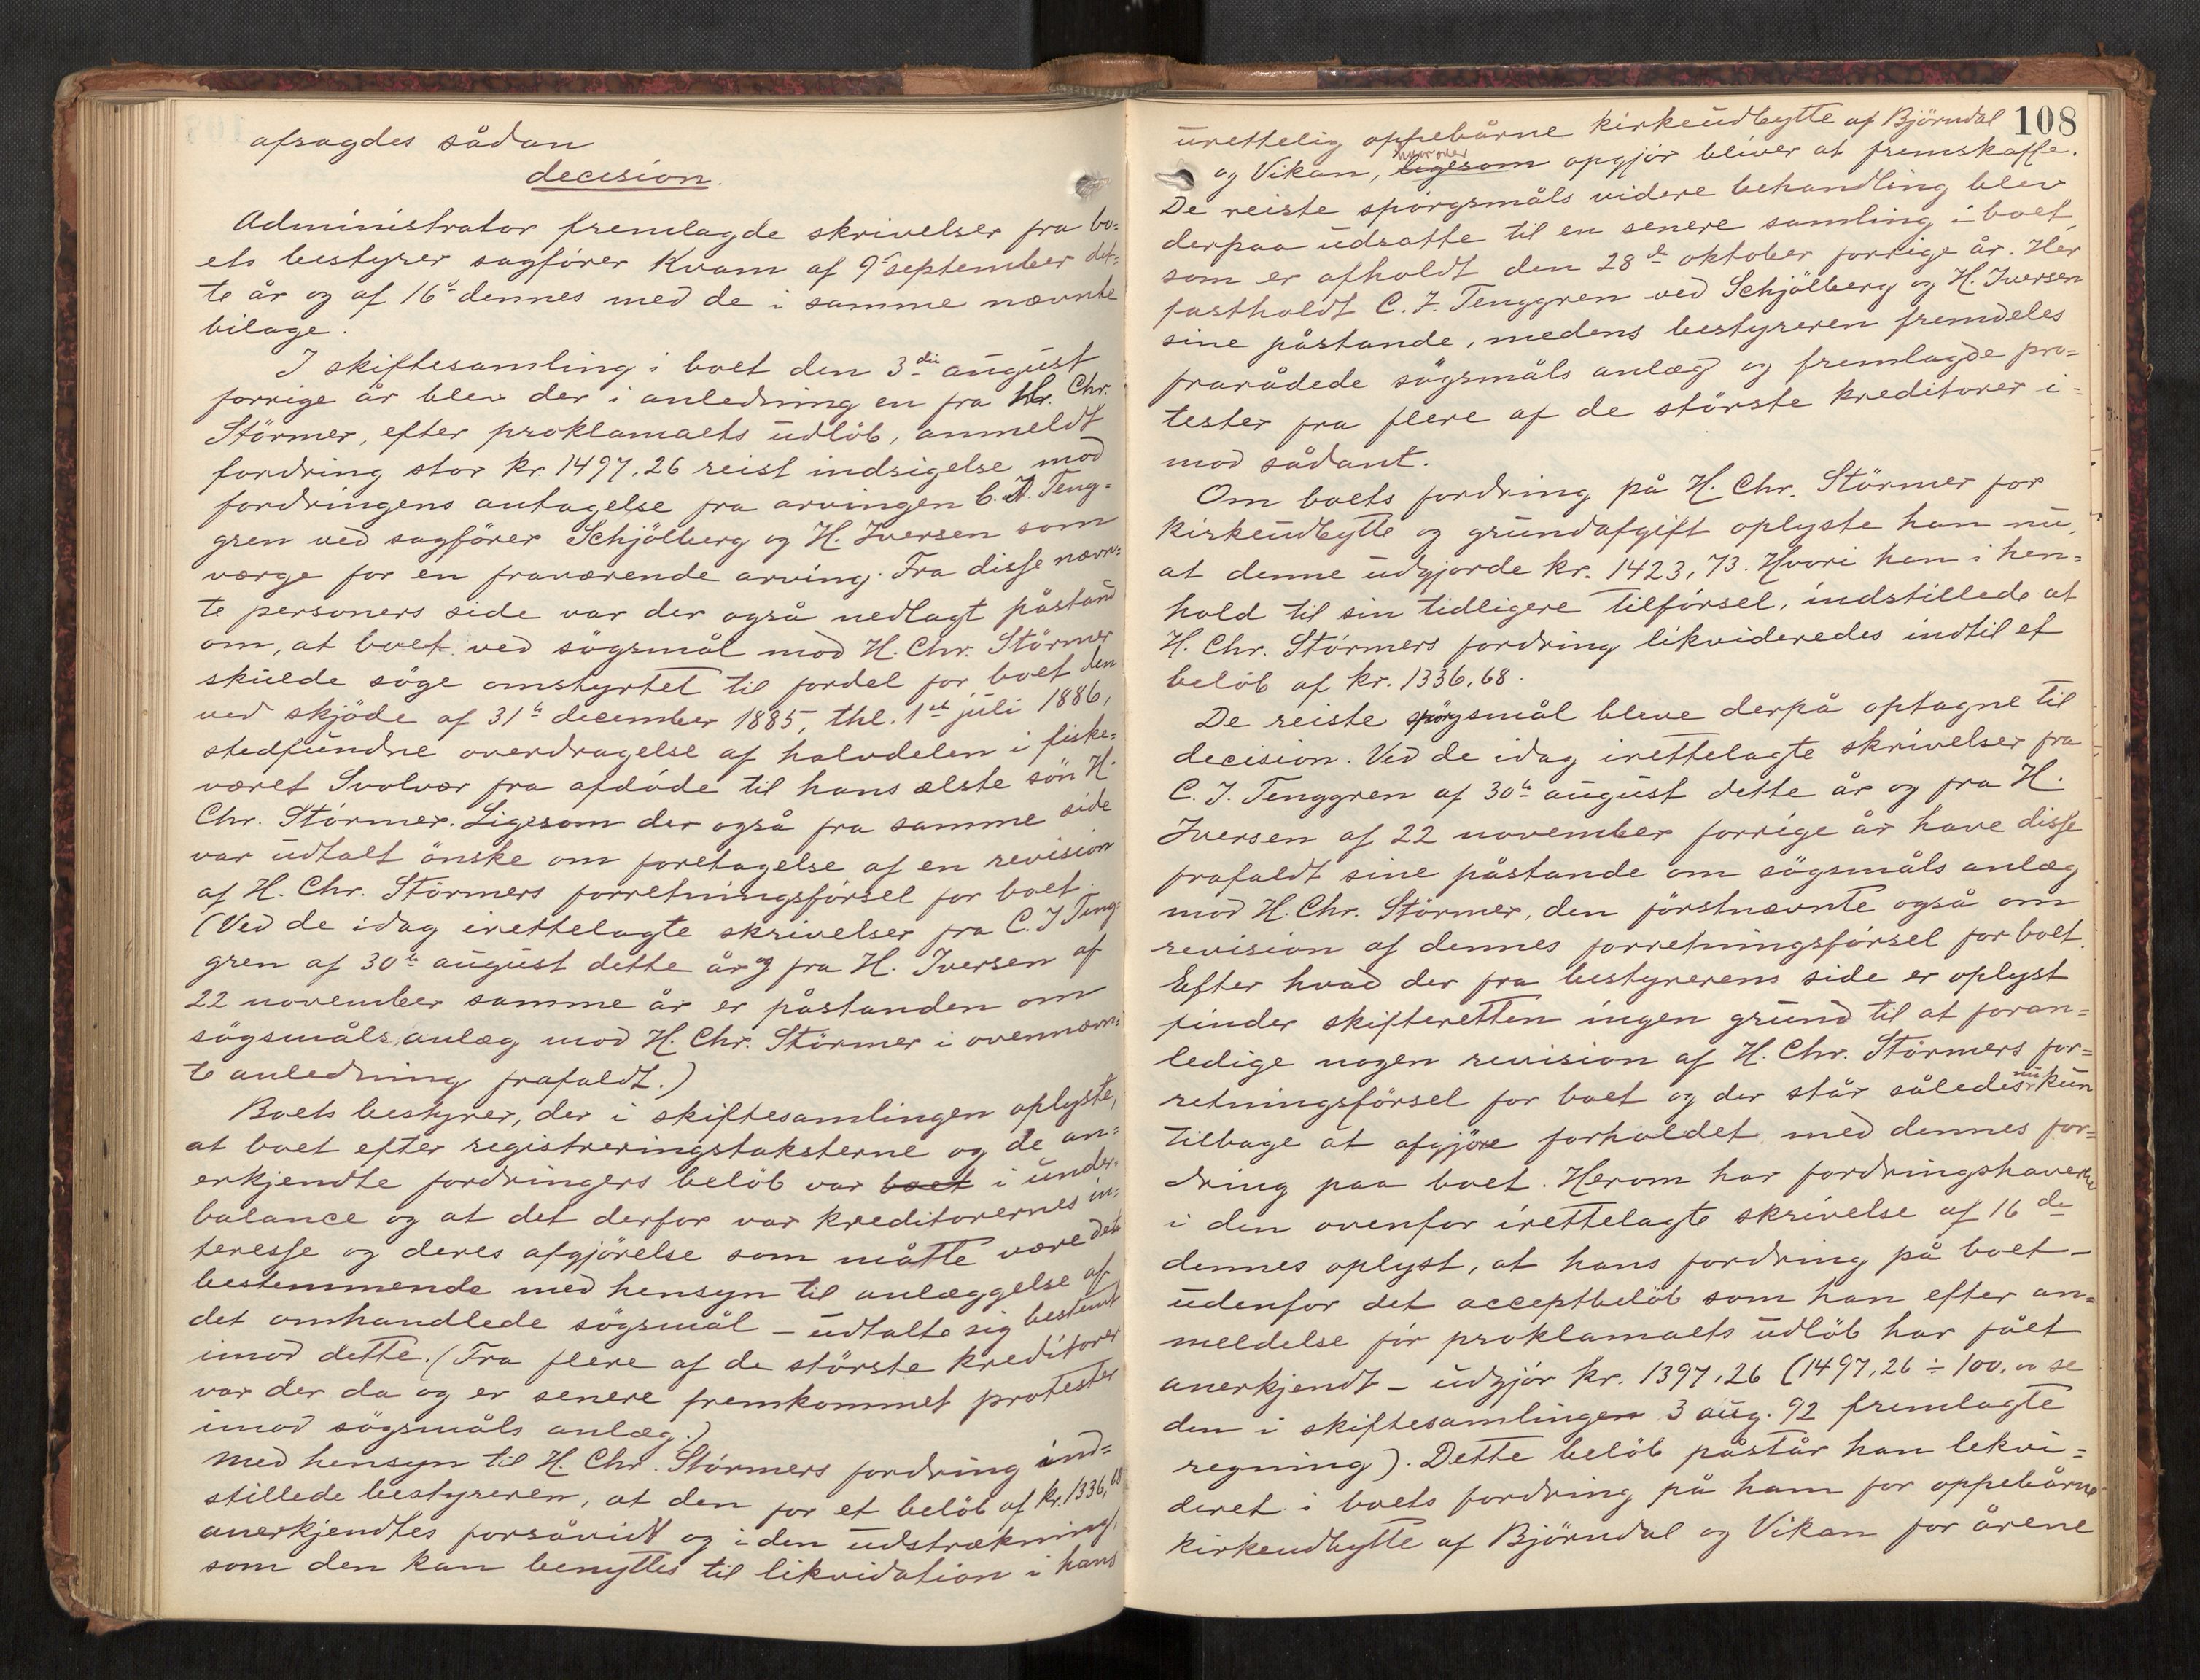 afsagdes sådan
decision.
Administrator fremlagde skrivelser fra bo=
ets bestyrer sagfører Kvam af 9de september det=
te år og af 16de dennes med de i samme nævnte
bilage.
I skiftesamling i boet den 3die august
forrige år blev der i anledning en fra H. Chr.
Störmer, efter proklamaets udlöb, anmeldt
fordring stor kr. 1497.26 reist indsigelse mod
fordringens antagelse fra arvingen C. J. Teng=
gren ved sagförer Schjölberg og H. Iversen som
værge for en fraværende arving. Fra disse nævn=
te personers side var der også nedlagt påstand
om, at boet ved sögsmål mod H. Chr. Störmer
skulde söge omstyrtet til fordel for boet den
ved skjöde af 31te december 1885, thl. 1ste juli 1886,
stedfundne overdragelse af halvdelen i fiske=
været Svolvær fra afdöde til hans ælste sön H.
Chr. Störmer. Ligesom der også fra samme side
var udtalt önske om foretagelse af en revision
af H. Chr. Störmers forretningsförsel for boet.
(Ved de idag irettelagte skrivelser fra C. J Teng=
gren af 30te august dette år og fra H. Iversen af
22 november samme år er påstanden om
sögsmåls anlæg mod H. Chr. Störmer i ovennævn=
te anledning frafaldt.)
Boets bestyrer, der i skiftesamlingen oplyste,
at boet efter registreringstaksterne og de an=
erkjendte fordringers belöb var boet i under=
balance og at det derfor var kreditorernes in=
teresse og deres afgjörelse som måtte være det
bestemmende med hensyn til anlæggelse af
det omhandlede sögsmål – udtalte sig bestemt
imod dette. (Fra flere af de störste kreditorer
var der da og er senere fremkommet protester
imod sögsmåls anlæg.)
Med hensyn til H. Chr. Störmers fordring ind=
stillede bestyreren, at den for et belöb af kr. 1336,68
anerkjendtes forsåvidt og i den udstrækning,
som den kan benyttes til likvidation i hans
108
urettelig oppebårne kirkeudbytte af Björndal
hvorover
og Vikan, ligesom opgjör bliver at fremskaffe.
De reiste spörgsmåls videre behandling blev
derpaa udsatte til en senere samling i boet,
som er afholdt den 28de oktober forrige år. Her
fastholdt C. J. Tenggren ved Schjölberg og H. Iversen
sine påstande, medens bestyreren fremdeles
frarådede sögsmåls anlæg og fremlagde pro=
tester fra flere af de störste kreditorer i=
mod sådant.
Om boets fordring på H. Chr. Störmer for
kirkeudbytte og grundafgift oplyste han nu,
at denne udgjorde kr. 1423,73. Hvori han i hen=
hold til sin tidligere tilförsel, indstillede at
H. Chr. Störmers fordring likvideredes indtil et
belöb af kr. 1336,68.
De reiste spörgsmål bleve derpå optagne til
decision. Ved de idag irettelagte skrivelser fra
C. J. Tenggren af 30te august dette år og fra H.
Iversen af 22 november forrige år have disse
frafaldt sine påstande om sögsmåls anlæg
mod H. Chr. Störmer, den förstnævnte også om
revision af dennes forretningsförsel for boet.
Efter hvad der fra bestyrerens side er oplyst
finder skifteretten ingen grund til at foran=
ledige nogen revision af H. Chr. Störmers for=
retningsförsel for boet og der står således nu kun
tilbage at afgjöre forholdet med dennes for=
dring paa boet. Herom har fordringshaveren
i den ovenfor irettelagte skrivelse af 16de
dennes oplyst, at hans fordring på boet –
udenfor det acceptbelöb som han efter an=
meldelse för proklamaets udlöb har fået
anerkjendt – udgjör kr. 1397,26 (1497,26 ÷ 100,00 se
den i skiftesamlingen 3 aug. 92 fremlagte
regning). Dette belöb påstår han lekvi=
deret i boets fordring på ham for oppebårne
kirkeudbytte af Björndal og Vikan for årene